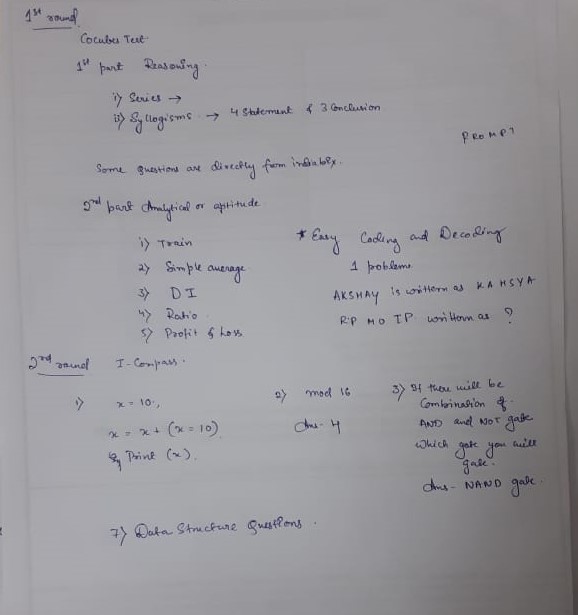 1st round
Cocubes Test
1st part Reasoning.
i) Series →
ii) Syllogisms. → 4 Statement & 3 Conclusion
PROMPT
Some questions are directly from indiabix.
2nd part Analytical or aptitude
1) Train
2) Simple average
3) DI
4) Ratio
5) Profit & Loss
* Easy Coding and Decoding
1 problem
AKSHAY is written as KAHSYA
RP MO TP written as ?
2nd round I-Compass.
1) x = 10.,
x = x + (x = 10)
Print (x).
2) mod 16
Ans- 4
3) If there will be
Combination of
AND and NOT gate
which gate you will
gate.
Ans- NAND gate.
7) Data Structure Questions.